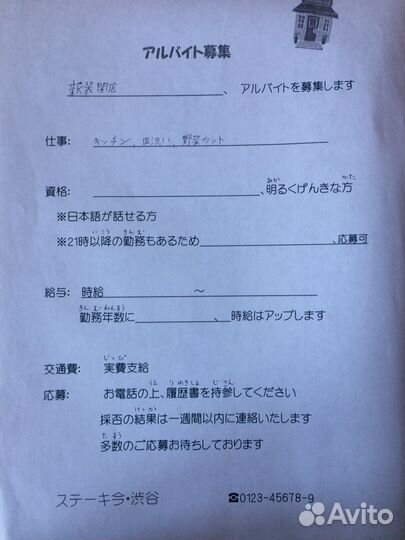 アルバイト募集
新装開店、アルバイトを募集します
仕事: キッチン、皿洗い、野菜カット
資格: 、明るくげんきな方
※日本語が話せる方
※21時以降の勤務もあるため、応募可
給与: 時給 ~
勤務年数に、時給はアップします
交通費: 実費支給
応募: お電話の上、履歴書を持参してください
採否の結果は一週間以内に連絡いたします
多数のご応募お待ちしております
ステーキ今・渋谷 ☎0123-45678-9
Avito